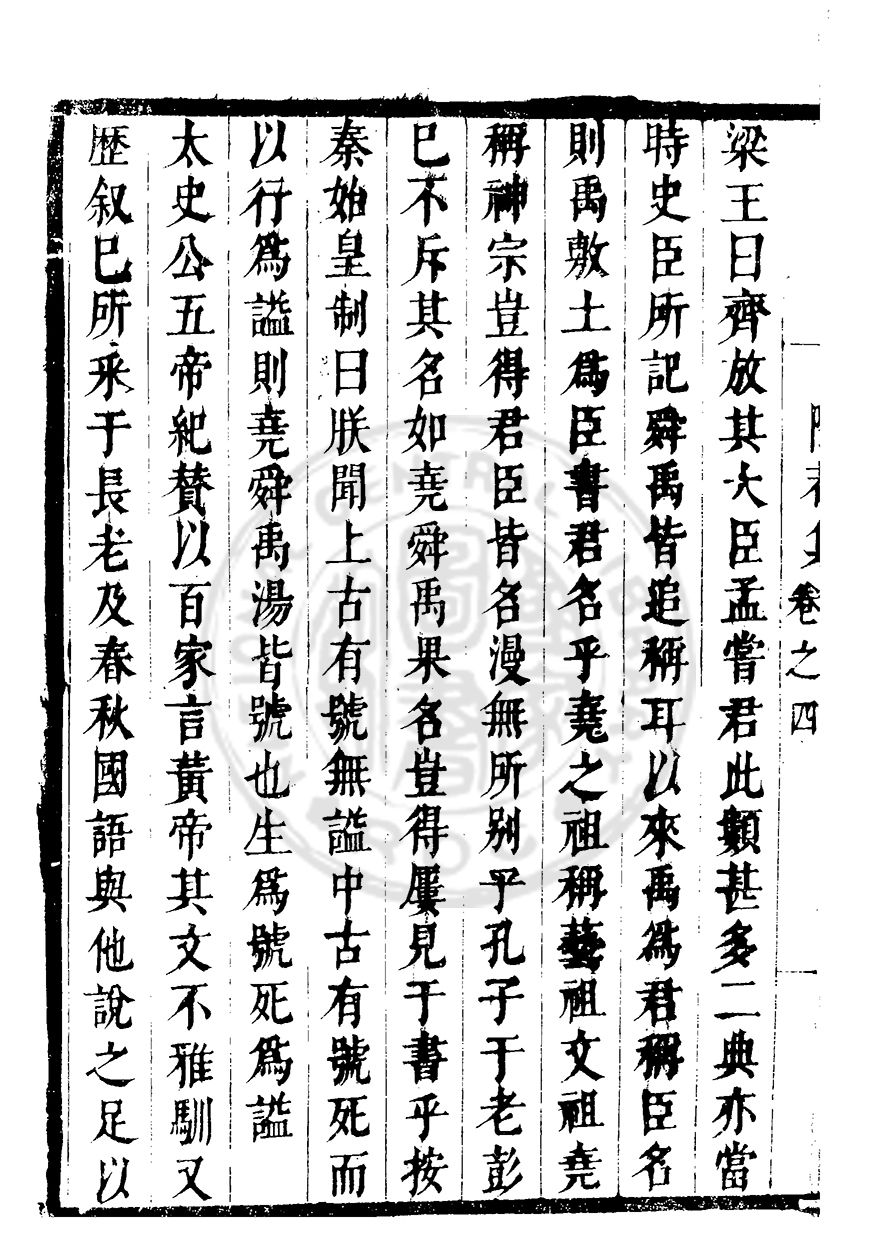 卷之四
梁王曰齊放其大臣孟嘗君此類甚多二典亦當
時史臣所記舜禹皆追稱耳以來禹為君稱臣名
則禹敷土為臣書君名乎堯之祖稱藝祖文祖堯
稱神宗豈得君臣皆名漫無所别乎孔子于老彭
巳不斥其名如堯舜禹果名豈得屢見于書乎按
秦始皇制曰朕聞上古有號無謚中古有號死而
以行爲謚則堯舜禹湯皆號也生爲號死爲謚
太史公五帝紀賛以百家言黄帝其文不雅馴又
歴叙巳所采于長老及春秋國語與他說之足以